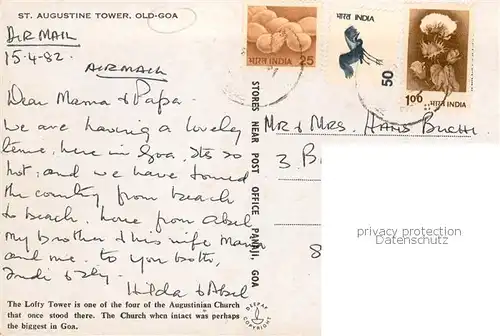 ST. AUGUSTINE TOWER, OLD-GOA
AIRMAIL
15-4-82.
AIRMAIL
Dear Mama & Papa.
We are having a lovely
time, here in Goa. Its so
hot, and we have toured
the country from beach
to beach. love from Abel
my brother & his wife
and me. to you both,
Hilda & Abel
The Lofty Tower is one of the four of the Augustinian Church
that once stood there. The Church when intact was perhaps
the biggest in Goa.
STORES NEAR POST OFFICE PANAJI, GOA
DEEPAK
COPYRIGHT
25
भारत INDIA
भारत INDIA
50
1.00 भारत INDIA
Mr & Mrs. Hans
3. B
8
privacy protection
Datenschutz